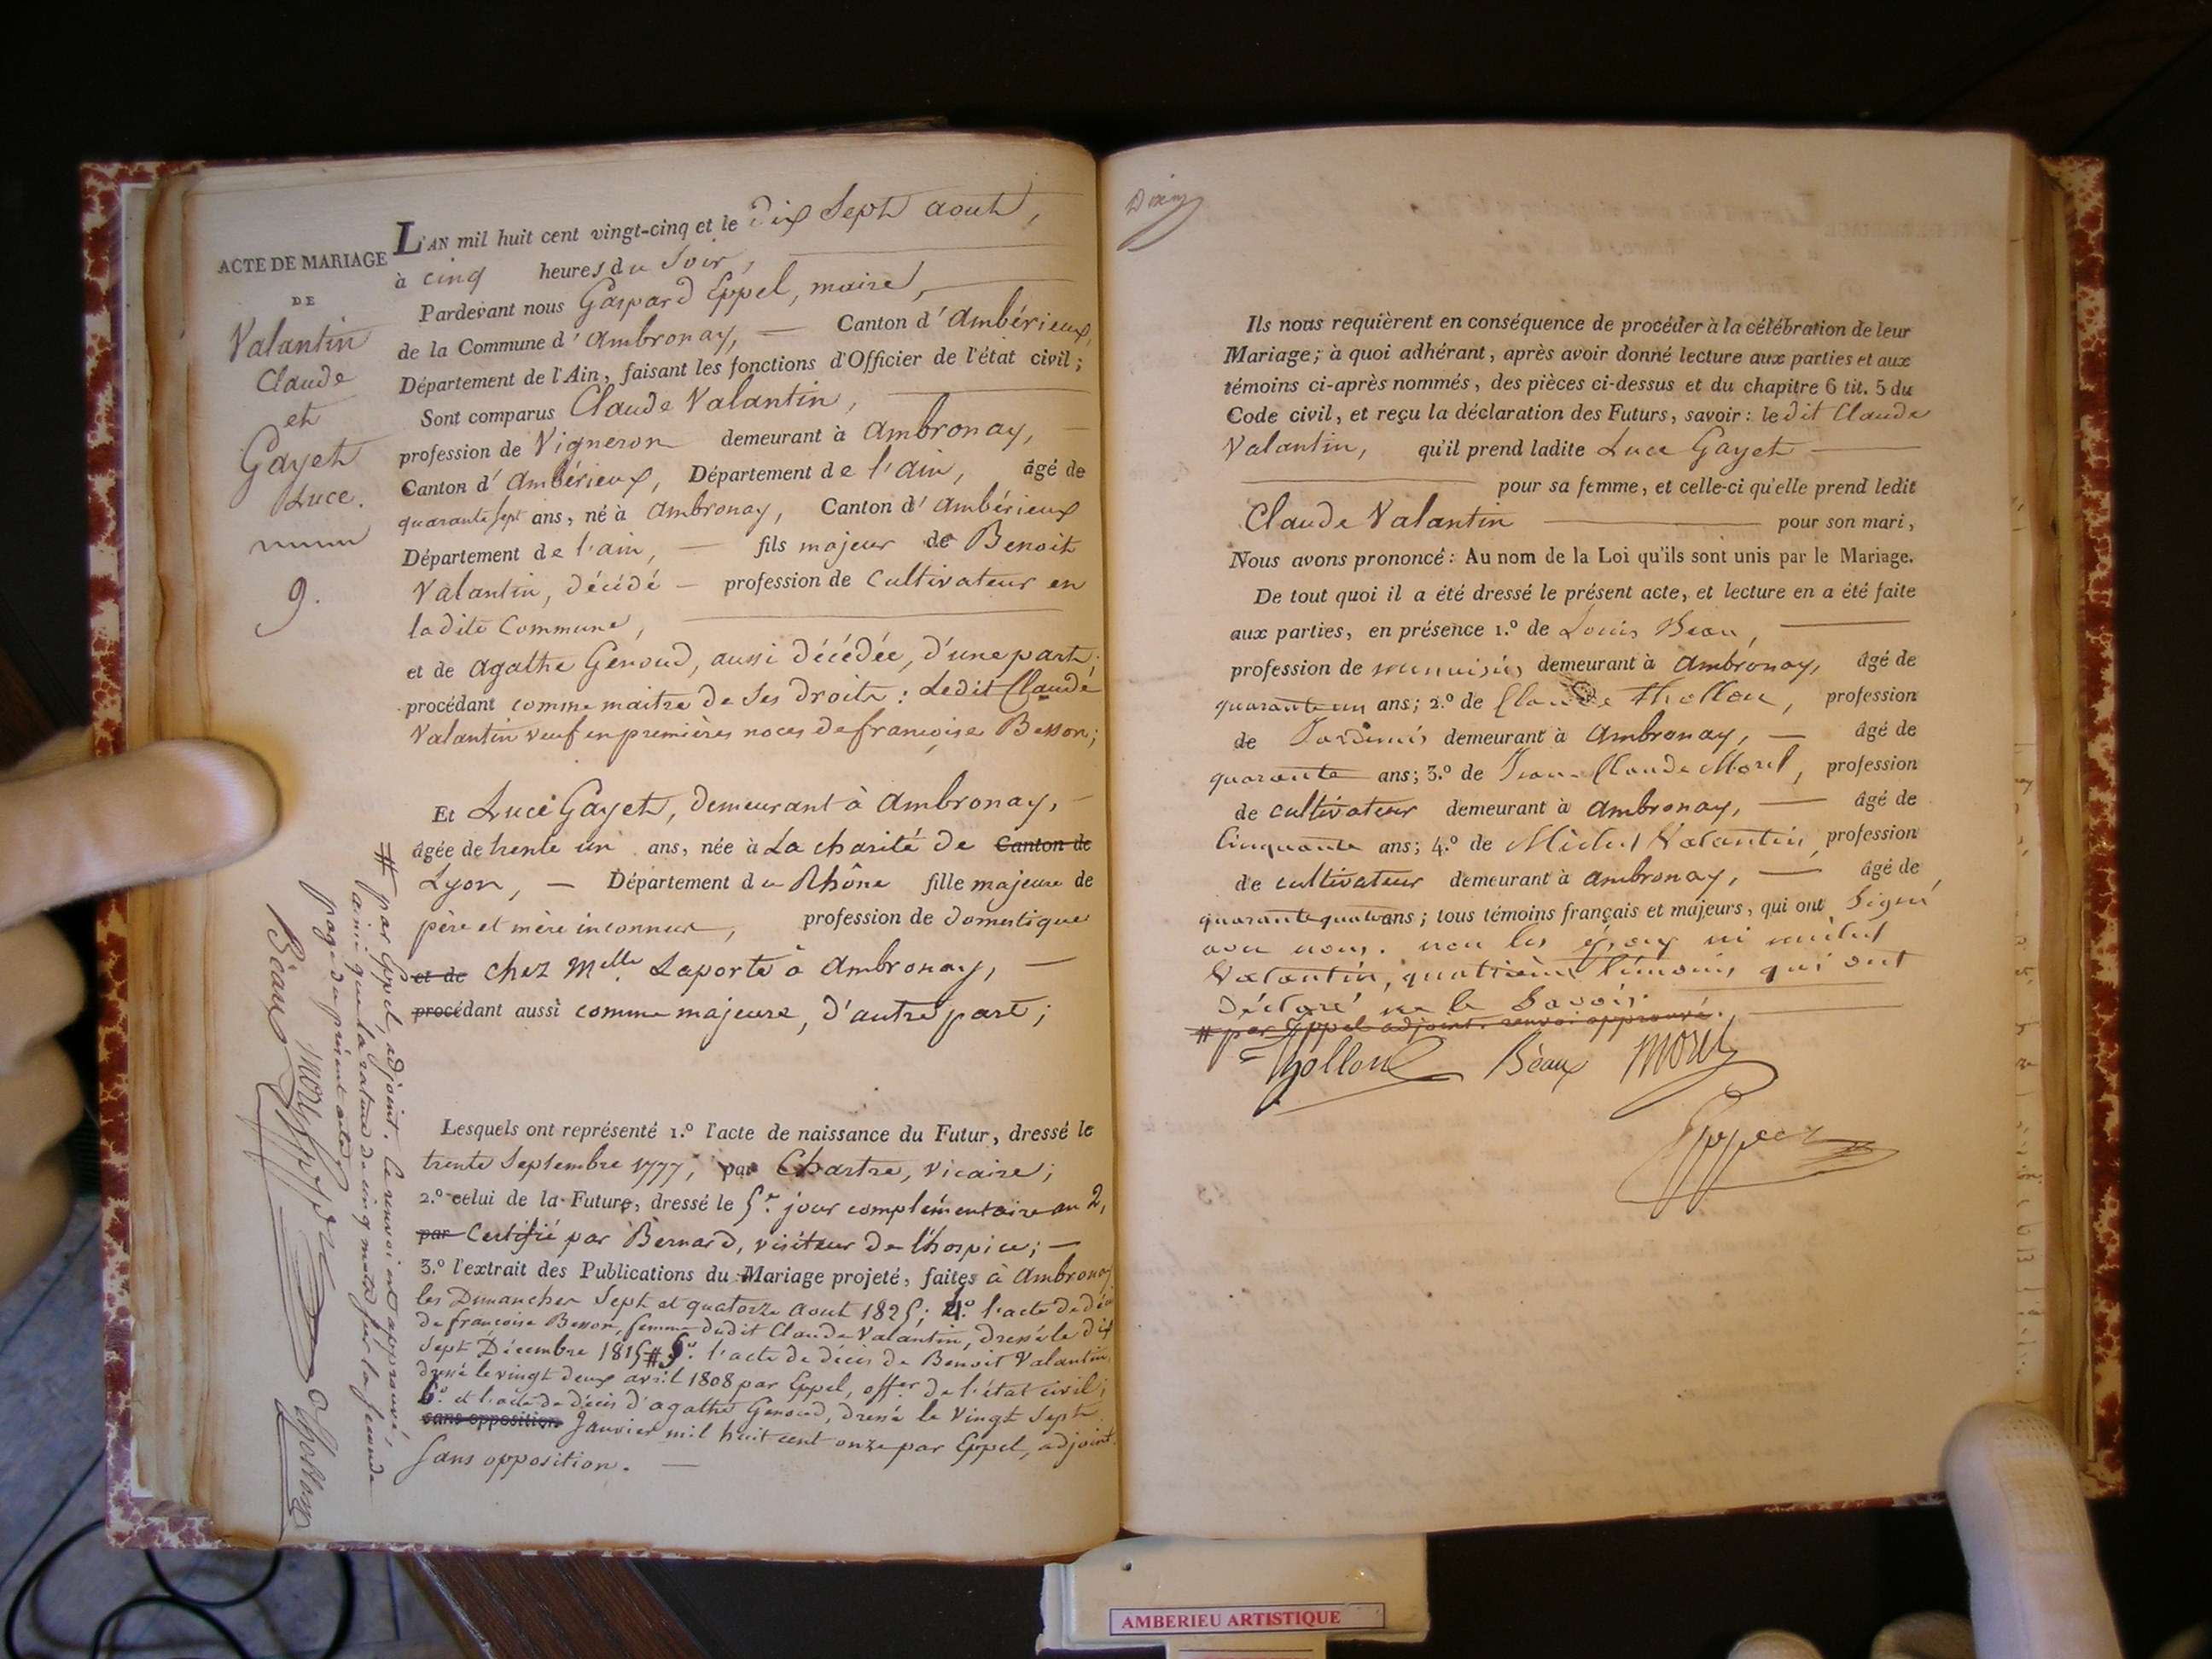 ACTE DE MARIAGE
DE
Valantin
Claude
et
Gayet
Luce.
9.
L'AN mil huit cent vingt-cinq et le dix Sept aout,
à cinq heures du Soir,
Pardevant nous Gaspard Eppel, maire,
de la Commune d'Ambronay, — Canton d'Ambérieux,
Département de l'Ain, faisant les fonctions d'Officier de l'état civil ;
Sont comparus Claude Valantin,
profession de Vigneron demeurant à Ambronay, —
Canton d'Ambérieux, Département de l'ain, âgé de
quarante sept ans, né à Ambronay, Canton d'Ambérieux
Département de l'ain, — fils majeur de Benoit
Valantin, décédé — profession de Cultivateur en
ladite Commune,
et de Agathe Genoud, aussi décédée, d'une part ;
procédant comme maitre de Ses droits : Ledit Claude
Valantin veuf en premières noces de françoise Besson ;
Et Luce Gayet, demeurant à Ambronay, —
âgée de trente un ans, née à La charité de Canton de
Lyon, — Département du Rhône fille majeure de
père et mère inconnus, profession de domestique
et de chez Melle Laporte à Ambronay, —
procédant aussi comme majeure, d'autre part ;
Lesquels ont représenté 1.º l'acte de naissance du Futur, dressé le
trente Septembre 1777, par Chartre, vicaire ;
2.º celui de la Future, dressé le 5e. jour complémentaire an 2,
par Certifié par Bernard, visiteur de l'hospice ; —
3.º l'extrait des Publications du Mariage projeté, faites à Ambronay
les Dimanches Sept et quatorze Aout 1825 ; 4.º l'acte de décè
de françoise Besson, femme dudit Claude Valantin, dressé le dix
Sept Décembre 1815 # 5º. l'acte de décès de Benoit Valantin,
dressé le vingt deux avril 1808 par Eppel, offer. de l'état civil ;
6.º et l'acte de décès d'agathe Genoud, dressé le Vingt Sept
sans opposition Janvier mil huit cent onze par Eppel, adjoint.
Sans opposition. —
# par Eppel, adjoint. Ce renvoi est approuvé,
ainsi que la rature de cinq mots sur la seconde
page du présent acte.
Béaux Morel Eppel Thollon
Ils nous requièrent en conséquence de procéder à la célébration de leur
Mariage ; à quoi adhérant, après avoir donné lecture aux parties et aux
témoins ci-après nommés, des pièces ci-dessus et du chapitre 6 tit. 5 du
Code civil, et reçu la déclaration des Futurs, savoir : ledit Claude
Valantin, qu'il prend ladite Luce Gayet —
pour sa femme, et celle-ci qu'elle prend ledit
Claude Valantin — pour son mari,
Nous avons prononcé : Au nom de la Loi qu'ils sont unis par le Mariage.
De tout quoi il a été dressé le présent acte, et lecture en a été faite
aux parties, en présence 1.º de Louis Beau,
profession de menuisier demeurant à Ambronay, âgé de
quarante un ans ; 2.º de Claude Thollon, profession
de Jardinier demeurant à Ambronay, — âgé de
quarante ans ; 3.º de Jean-Claude Morel, profession
de cultivateur demeurant à Ambronay, — âgé de
Cinquante ans ; 4.º de Michel Valantin, profession
de cultivateur demeurant à Ambronay, — âgé de
quarante quatre ans ; tous témoins français et majeurs, qui ont Signé
avec nous. non les époux ni michel
Valantin, quatrième témoin, qui ont
Déclaré ne le Savoir.
# par Eppel adjoint. renvoi approuvé.
Thollon Béaux Morel
Eppel
AMBERIEU ARTISTIQUE